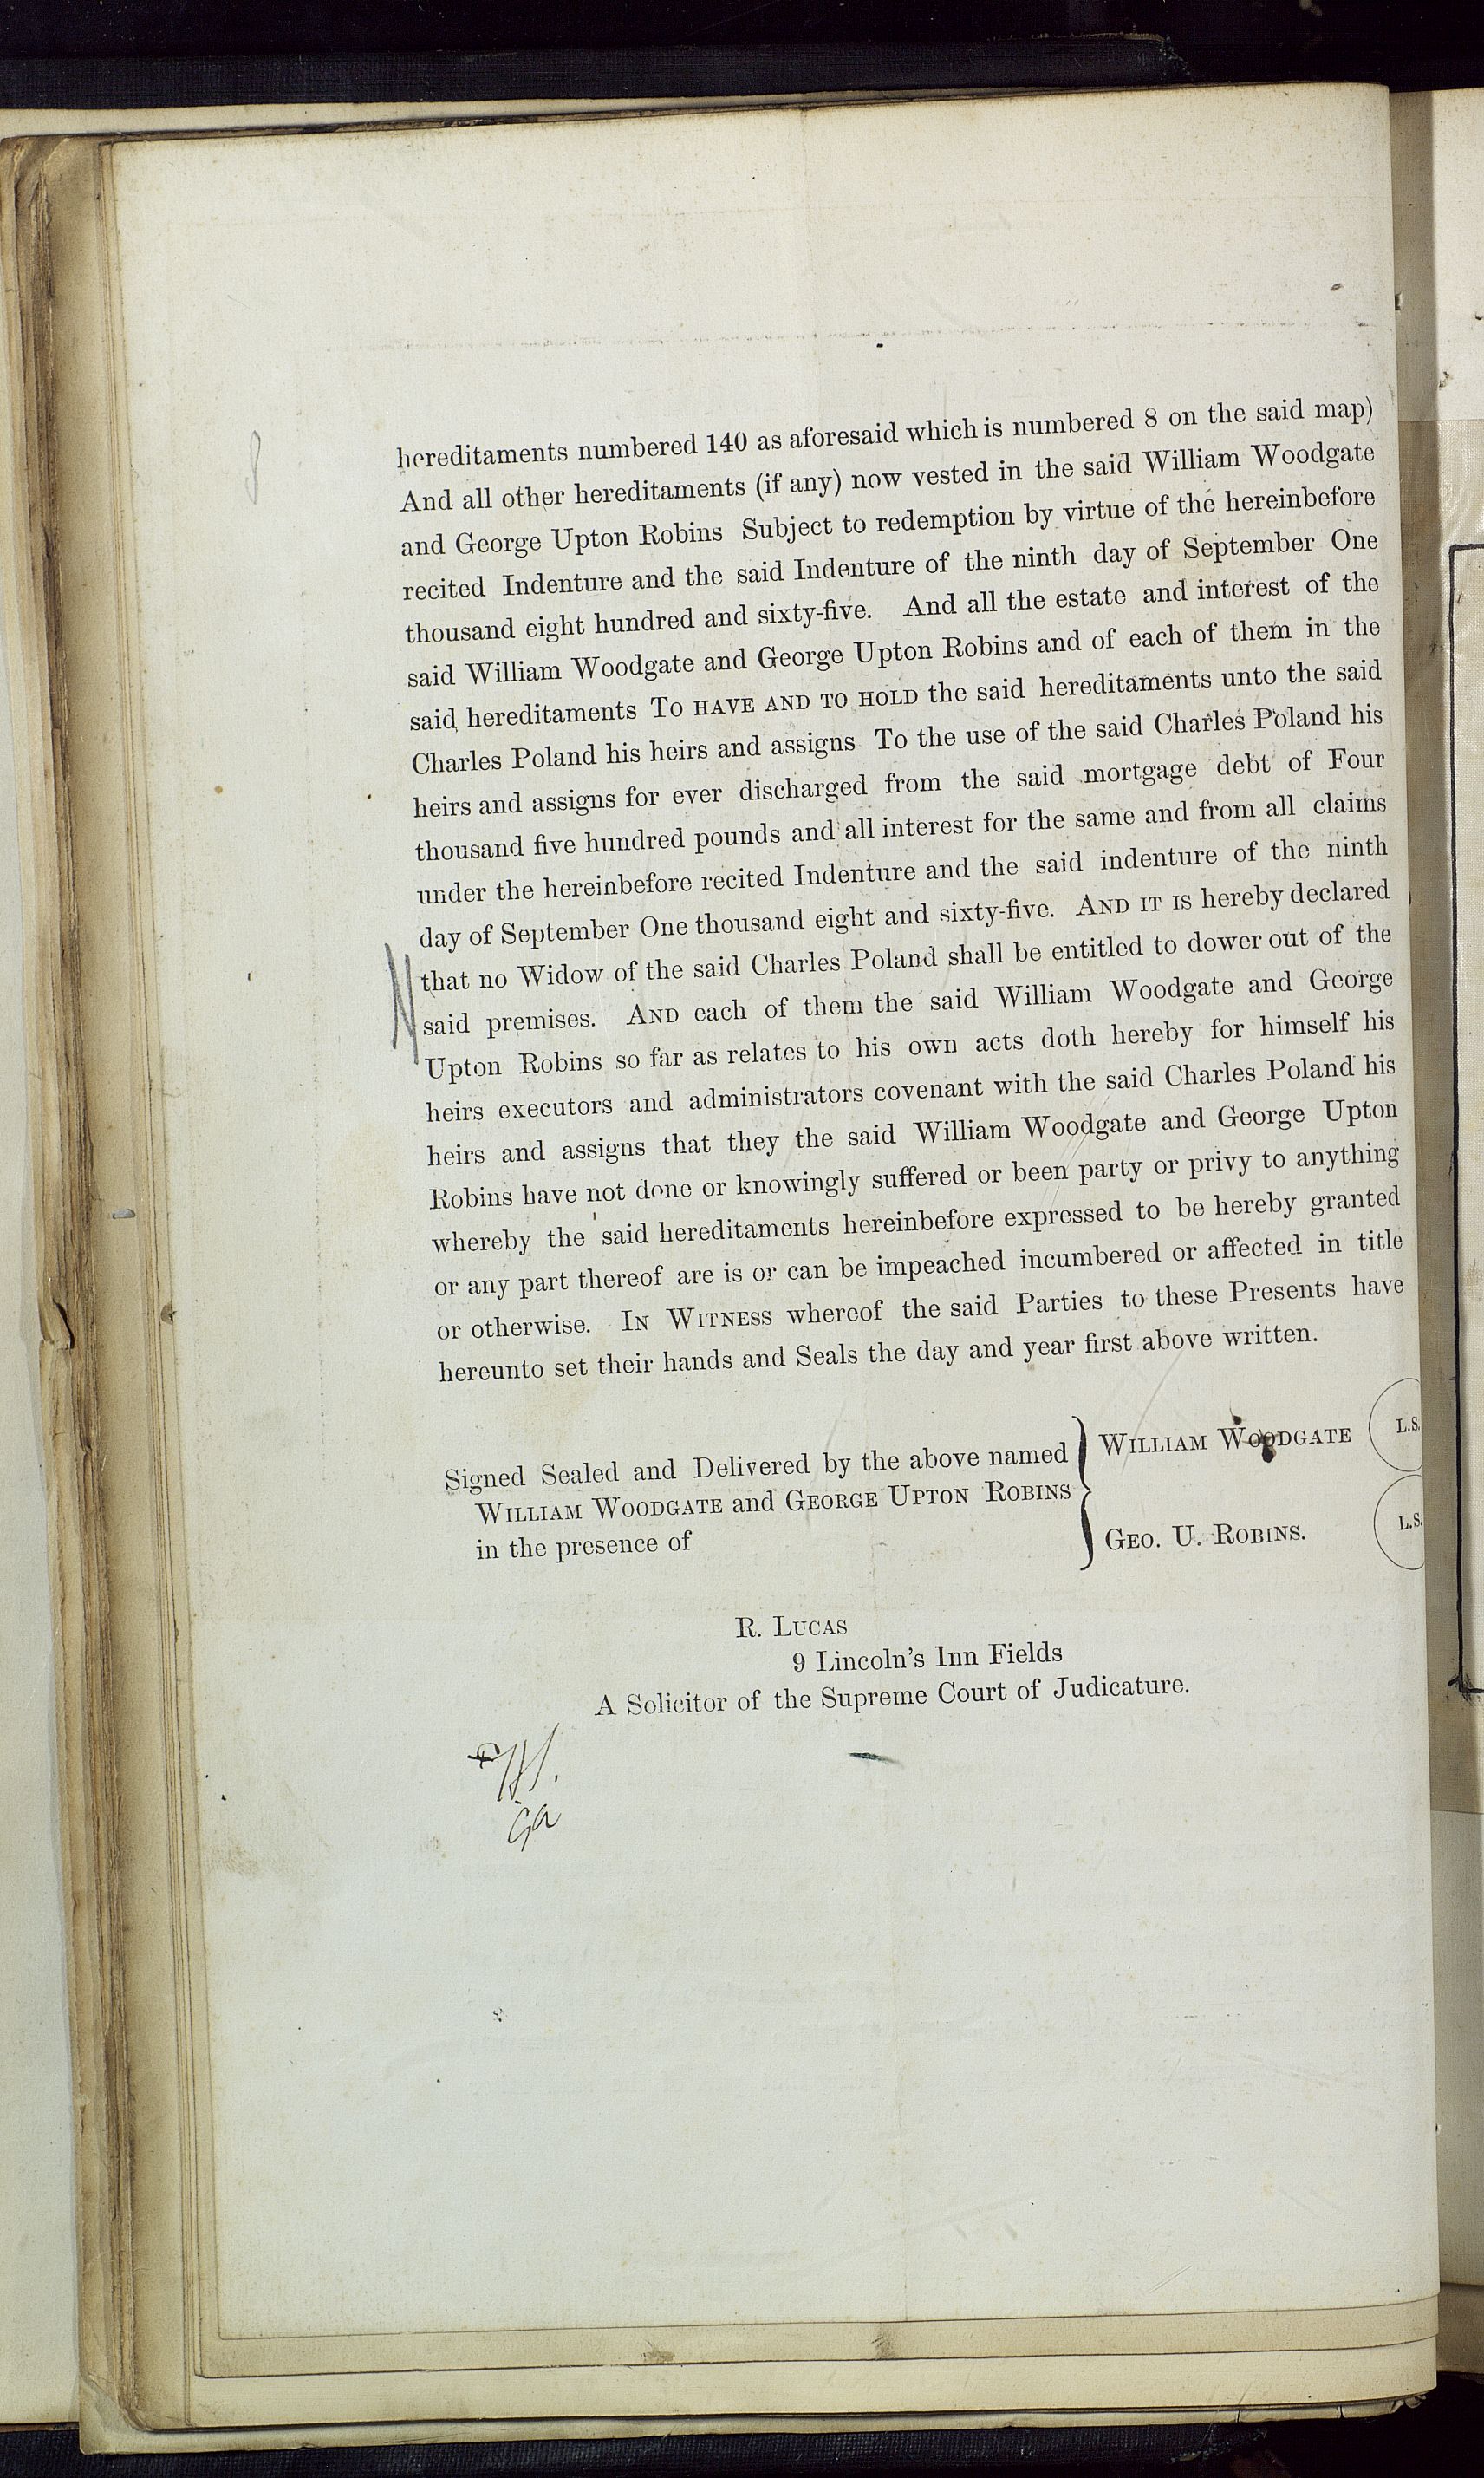 8
hereditaments numbered 140 as aforesaid which is numbered 8 on the said map)
And all other hereditaments (if any) now vested in the said William Woodgate
and George Upton Robins Subject to redemption by virtue of the hereinbefore
recited Indenture and the said Indenture of the ninth day of September One
thousand eight hundred and sixty-five. And all the estate and interest of the
said William Woodgate and George Upton Robins and of each of them in the
said hereditaments To HAVE AND TO HOLD the said hereditaments unto the said
Charles Poland his heirs and assigns To the use of the said Charles Poland his
heirs and assigns for ever discharged from the said mortgage debt of Four
thousand five hundred pounds and all interest for the same and from all claims
under the hereinbefore recited Indenture and the said indenture of the ninth
day of September One thousand eight and sixty-five. AND IT IS hereby declared
that no Widow of the said Charles Poland shall be entitled to dower out of the
said premises. AND each of them the said William Woodgate and George
Upton Robins so far as relates to his own acts doth hereby for himself his
heirs executors and administrators covenant with the said Charles Poland his
heirs and assigns that they the said William Woodgate and George Upton
Robins have not done or knowingly suffered or been party or privy to anything
whereby the said hereditaments hereinbefore expressed to be hereby granted
or any part thereof are is or can be impeached incumbered or affected in title
or otherwise. IN WITNESS whereof the said Parties to these Presents have
hereunto set their hands and Seals the day and year first above written.
Signed Sealed and Delivered by the above named
WILLIAM WOODGATE and GEORGE UPTON ROBINS
in the presence of
WILLIAM WOODGATE L.S.
GEO. U. ROBINS. L.S.
R. LUCAS
9 Lincoln's Inn Fields
A Solicitor of the Supreme Court of Judicature.